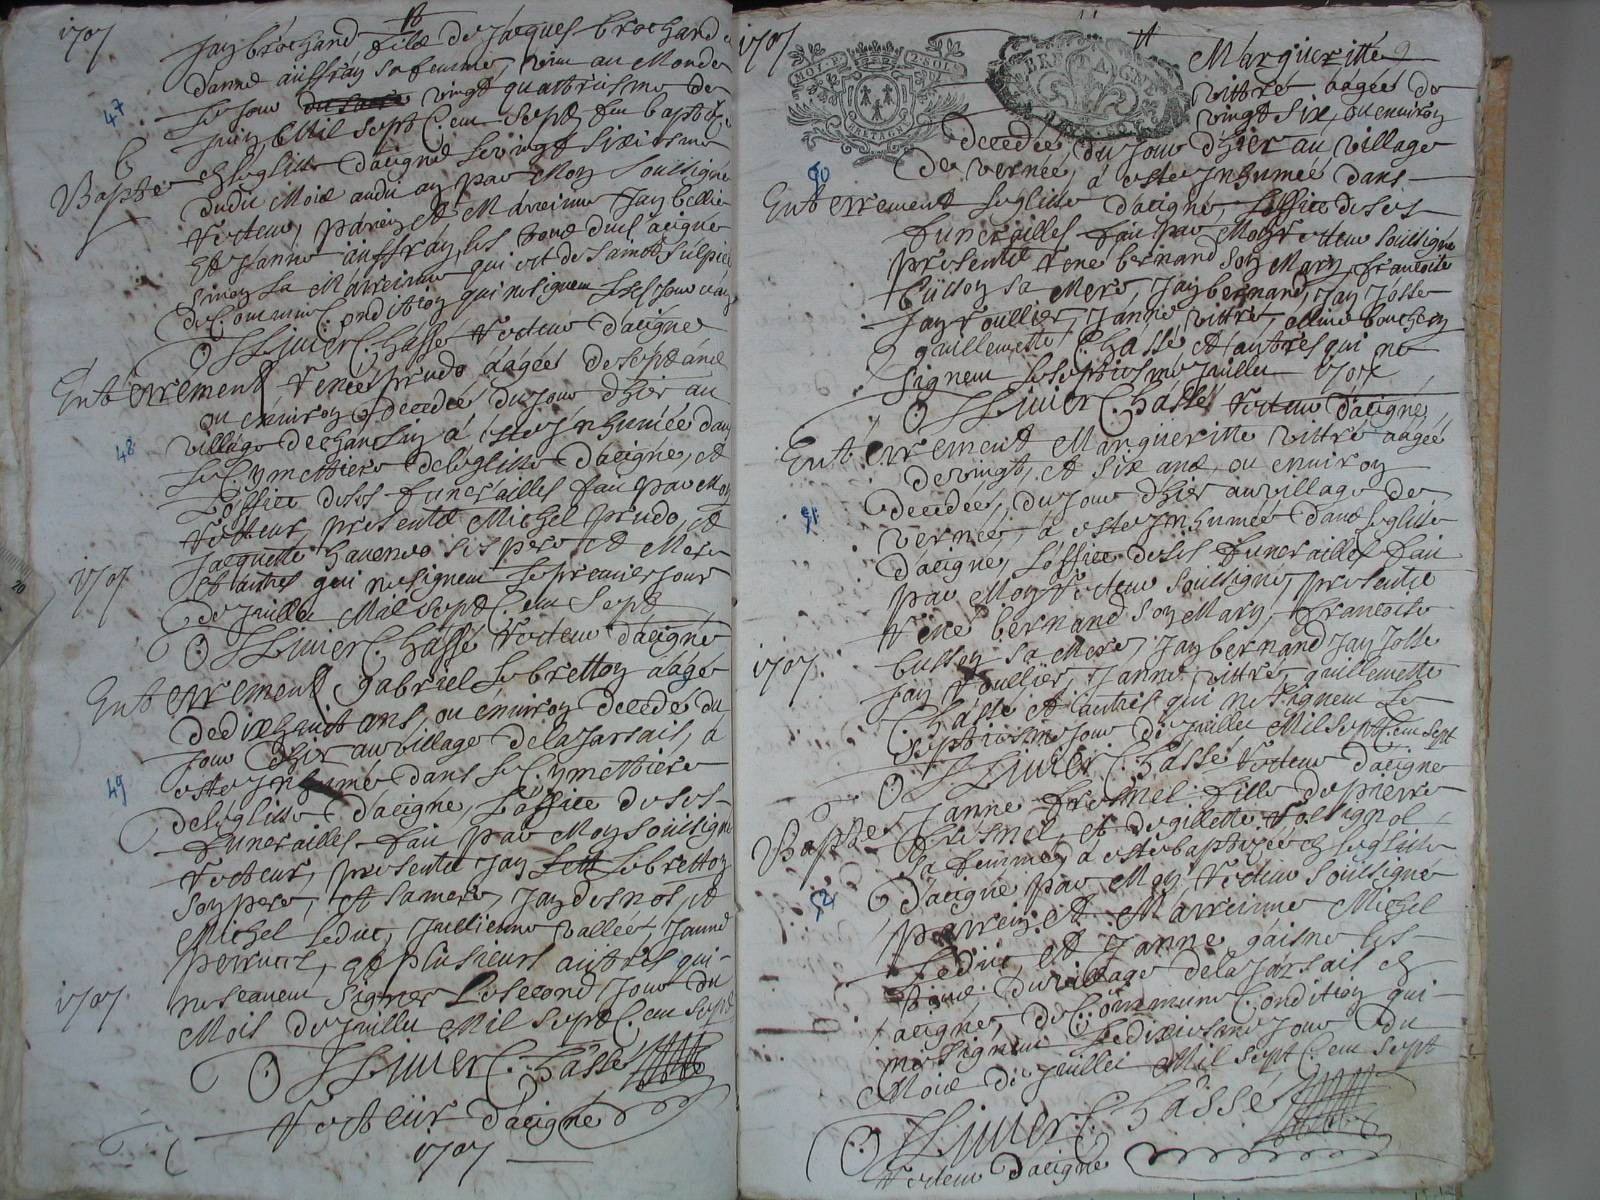 1707
Jan brochand fils de Jacques brochard
danne auffray sa femme, vein au Monde
47
le jour vingt quatriesme de
juin Mil sept Cent sept fut baptizé
Bapte
en leglise d'acigné le vingt sixiesme
dudit Mois audit an par Moy soussigné
recteur, parein et Mareinne Jan bellier
et Janne auffray, les tous deux d'acigné
sinon la Marreinne qui est de saint sulpice
de Commune Condition qui ne signent
Ollivier Chassé recteur d'acigné
Enterrement
prudo aagée de sept ans
ou environ decedée du jour d'hier au
48
village de a esté inhumée dans
le Cymettiere de l'eglise d'acigné, et
l'office de ses funerailles fait par Moy
recteur, presents Michel prudo, et
Jacquette ses pere et Mere
1707
et autres qui ne signent le premier jour
de juillet Mil sept Cent sept
Ollivier Chassé recteur d'acigné
Enterrement Gabriel le bretton aagé
de dixhuict ans, ou environ decedé du
jour d'hier au village de la Jarsais, a
49
esté inhumé dans le Cymettiere
de l'eglise d'acigné, l'office de ses
funerailles fait par Moy soussigné
recteur, presents Jan le bretton
son pere, et sa mere, Jan desnos, et
Michel leduc, Jullienne vallée, Janne
perruel, et plusieurs autres qui
1707
ne scavent signer le second jour du
Mois de juillet Mil sept Cent sept
Ollivier Chassé
recteur d'acigné
1707
1707
MOY. P. 2. SOLS
BRETAGNE
BRETAGNE
Margueritte
vittré aagée de
vingt six, ou environ
decedée, du jour d'hier au village
50
de vernée, a esté inhumée dans
Enterrement leglise d'acigné, l'office de ses
funerailles fait par Moy recteur soussigné
presents rené bernard son Mary, francoise
busson sa Mere, Jan bernard, Jan Josse
Jan roullier, Janne vittré, ollive bouchery
guillemette Chassé et autres qui ne
signent le septiesme juillet 1707
Ollivier Chassé recteur d'acigné
Enterrement Margueritte vittré aagée
de vingt, et six ans, ou environ
decedée, du jour d'hier au village de
51
vernée, a esté inhumée dans leglise
d'acigné, l'office de ses funerailles fait
par Moy recteur soussigné, presents
rené bernard son Mary, francoise
1707
busson sa Mere, Jan bernard Jan Josse
Jan roullier, Janne vittré, guillemette
Chassé et autres qui ne signent le
septiesme jour de juillet Mil sept Cent sept
Ollivier Chassé recteur d'acigné
Bapte
Janne fresnel fille de pierre
fresnel, et de gillette rossignol
sa femme, a esté baptizée en leglise
52
d'acigné par Moy recteur soussigné
parrein et Marreinne Michel
leduc, et Janne gaisne les
tous du village de la Jarsais en
acigné, de Commune Condition qui
ne signent le dixiesme jour du
Mois de juillet Mil sept Cent sept
Ollivier Chassé
recteur d'acigné